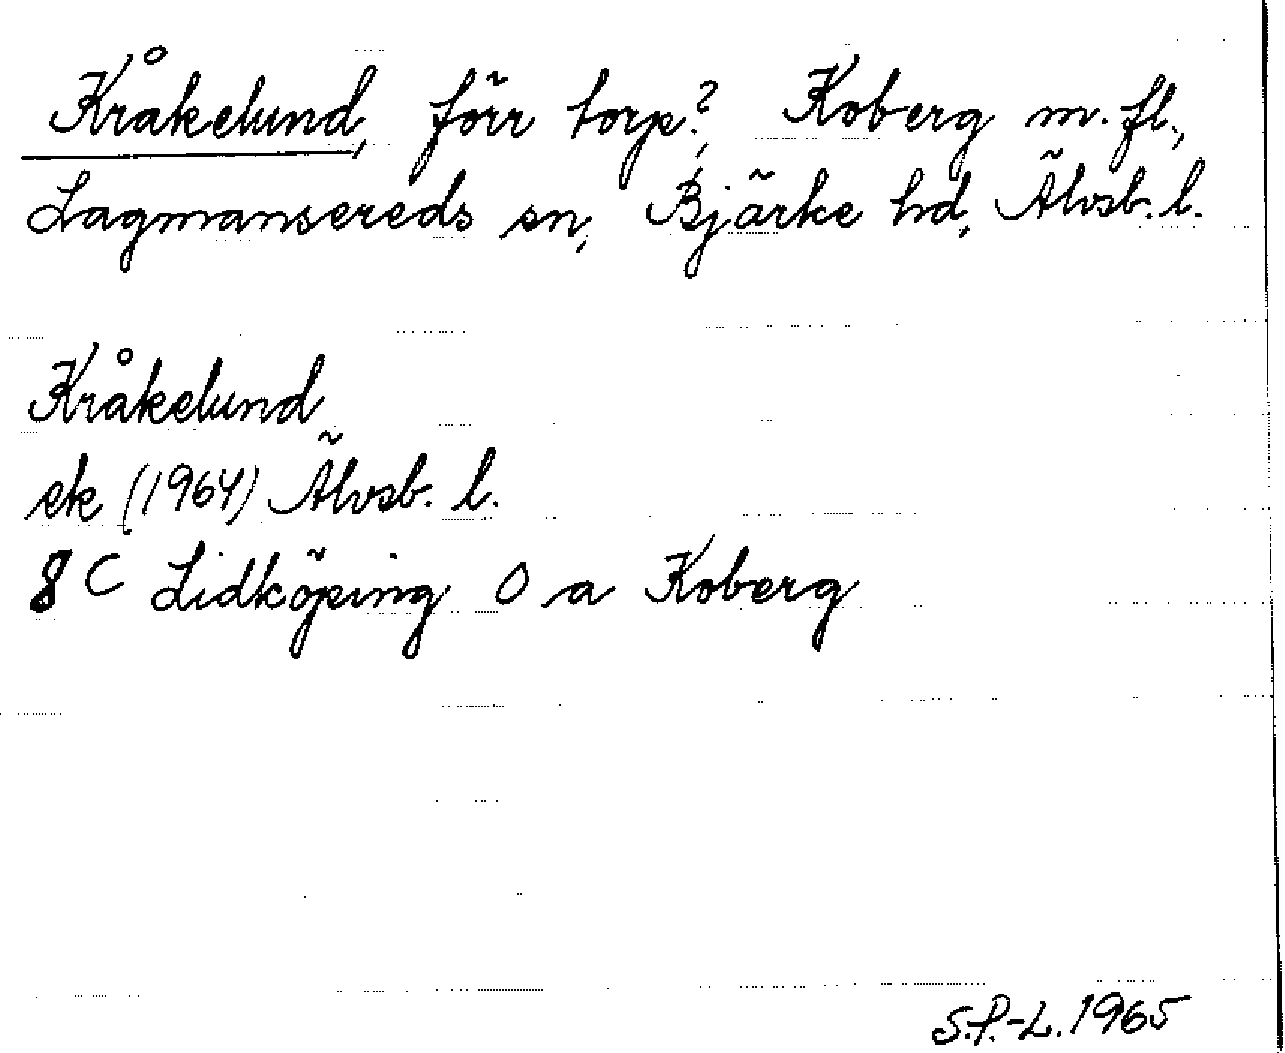 Kråkelund, förr torp?, Koberg m. fl.,
Lagmansereds sn, Bjärke hd, Älvsb. l.
Kråkelund
ek (1964) Älvsb. l.
8 C Lidköping 0 a Koberg
S.P.-L. 1965